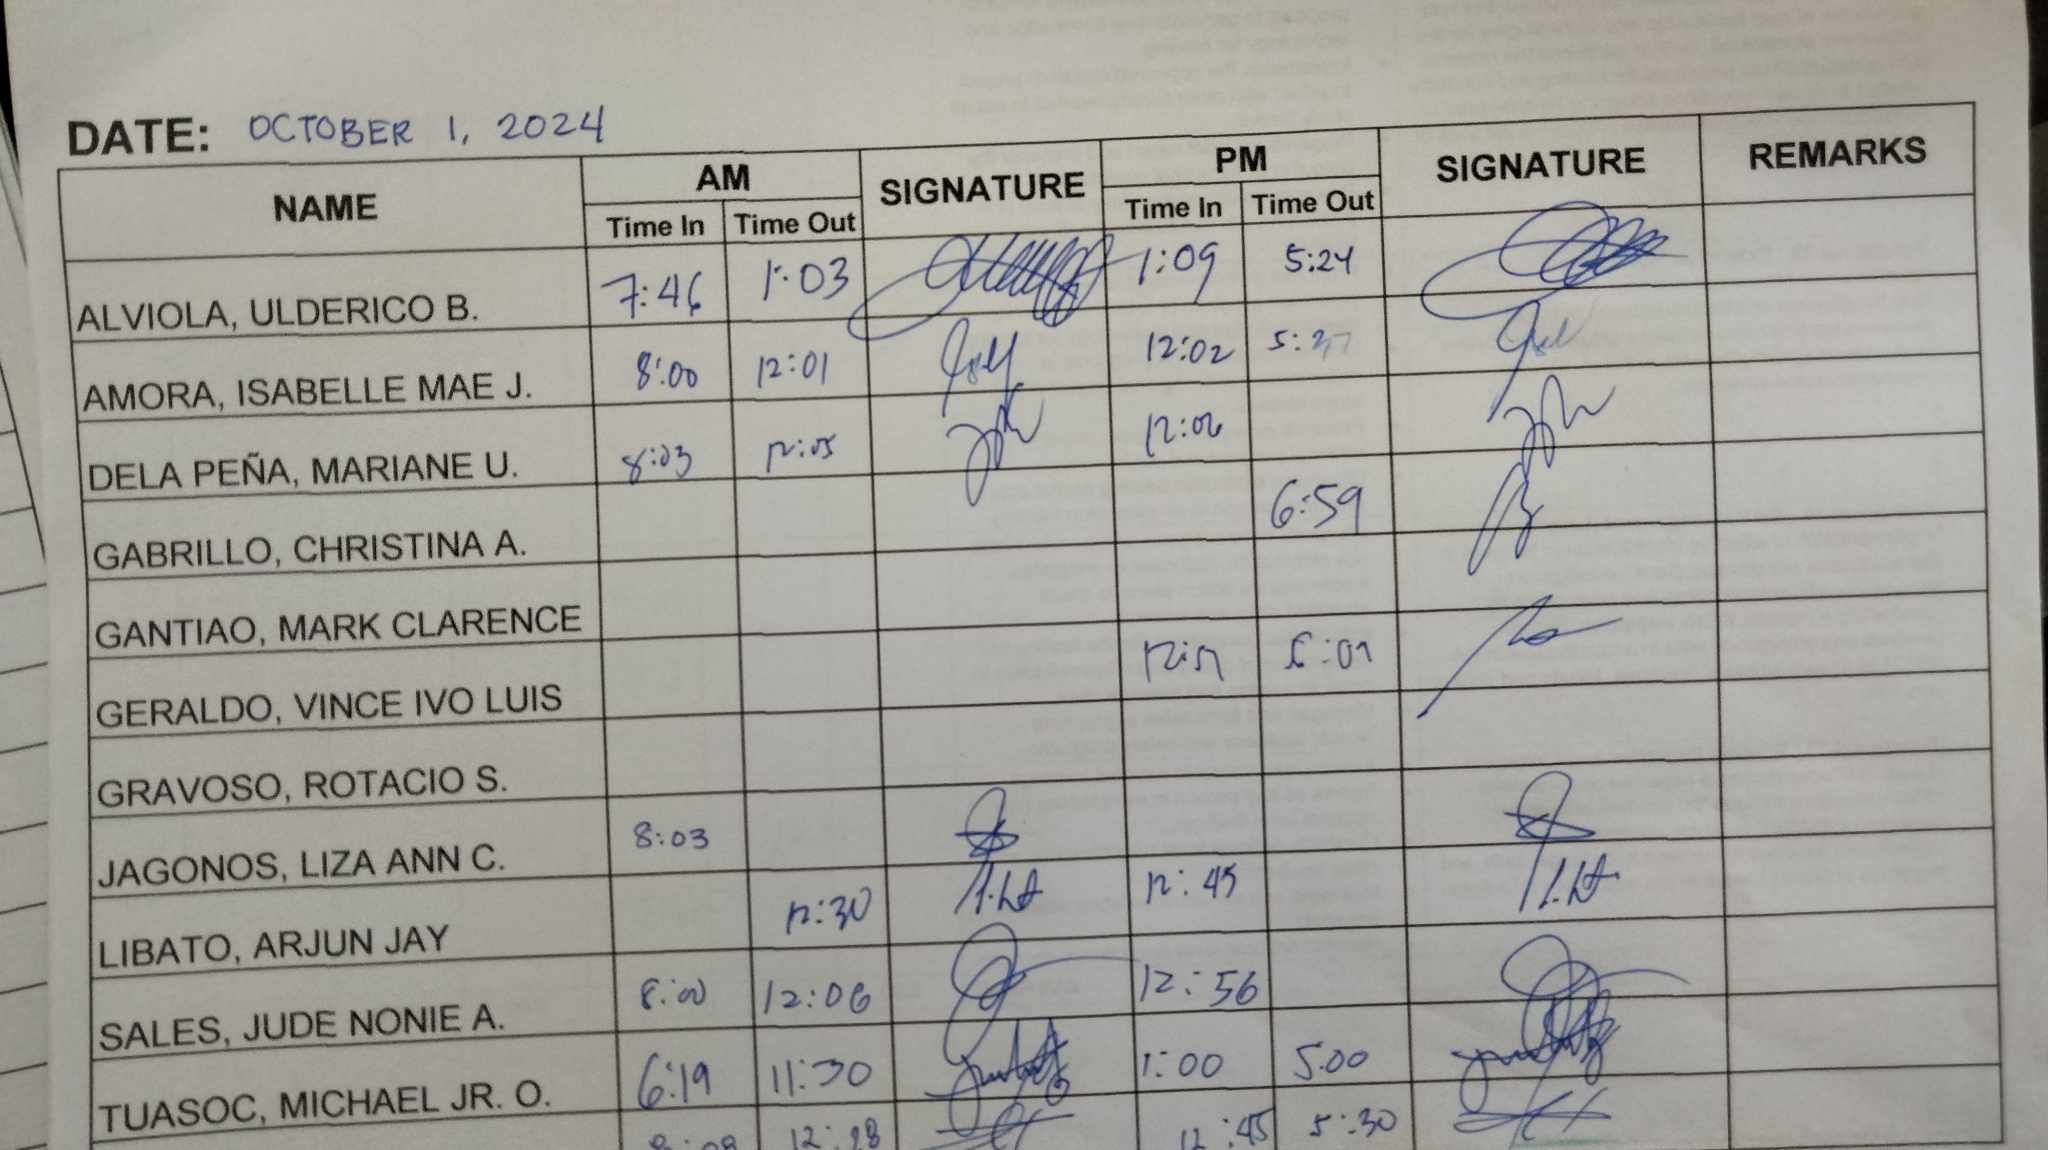 DATE: OCTOBER 1, 2024
NAME AM SIGNATURE PM SIGNATURE REMARKS
Time In Time Out Time In Time Out
ALVIOLA, ULDERICO B. 7:46 1:03 1:09 5:24
AMORA, ISABELLE MAE J. 8:00 12:01 12:02
DELA PEÑA, MARIANE U. 8:03 12:05 12:06
GABRILLO, CHRISTINA A. 6:59
GANTIAO, MARK CLARENCE
GERALDO, VINCE IVO LUIS 6:01
GRAVOSO, ROTACIO S.
JAGONOS, LIZA ANN C. 8:03
LIBATO, ARJUN JAY 12:30 12:45
SALES, JUDE NONIE A. 8:00 12:06 12:56
TUASOC, MICHAEL JR. O. 6:19 11:30 1:00 5:00
12:28 12:45 5:30